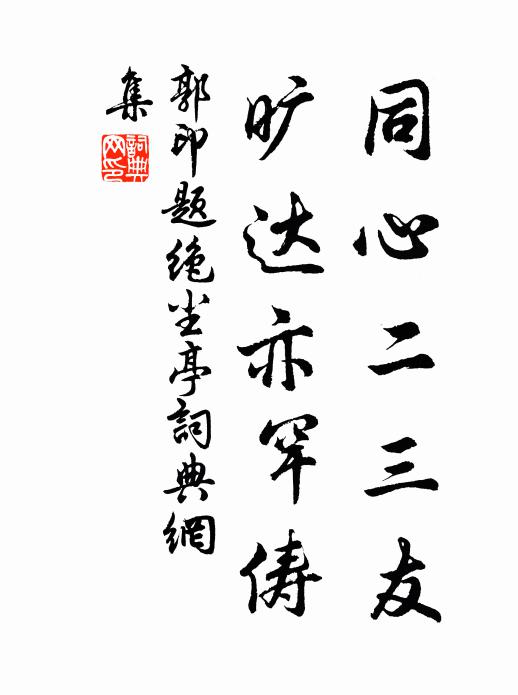 同心二三友
旷达亦罕俦
郭印题绝尘亭詞典網
集
詞典网印